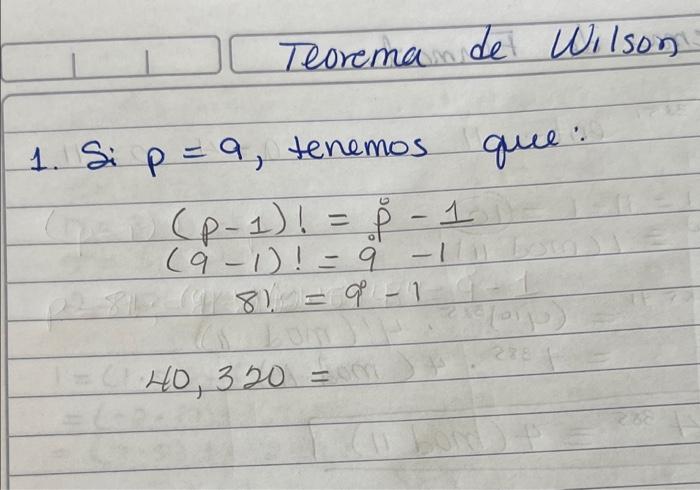 Teorema de Wilson
1. Si p = 9, tenemos que:
(p-1)! = p̊ - 1
(9-1)! = 9̊ - 1
8! = 9̊ - 1
40,320 =